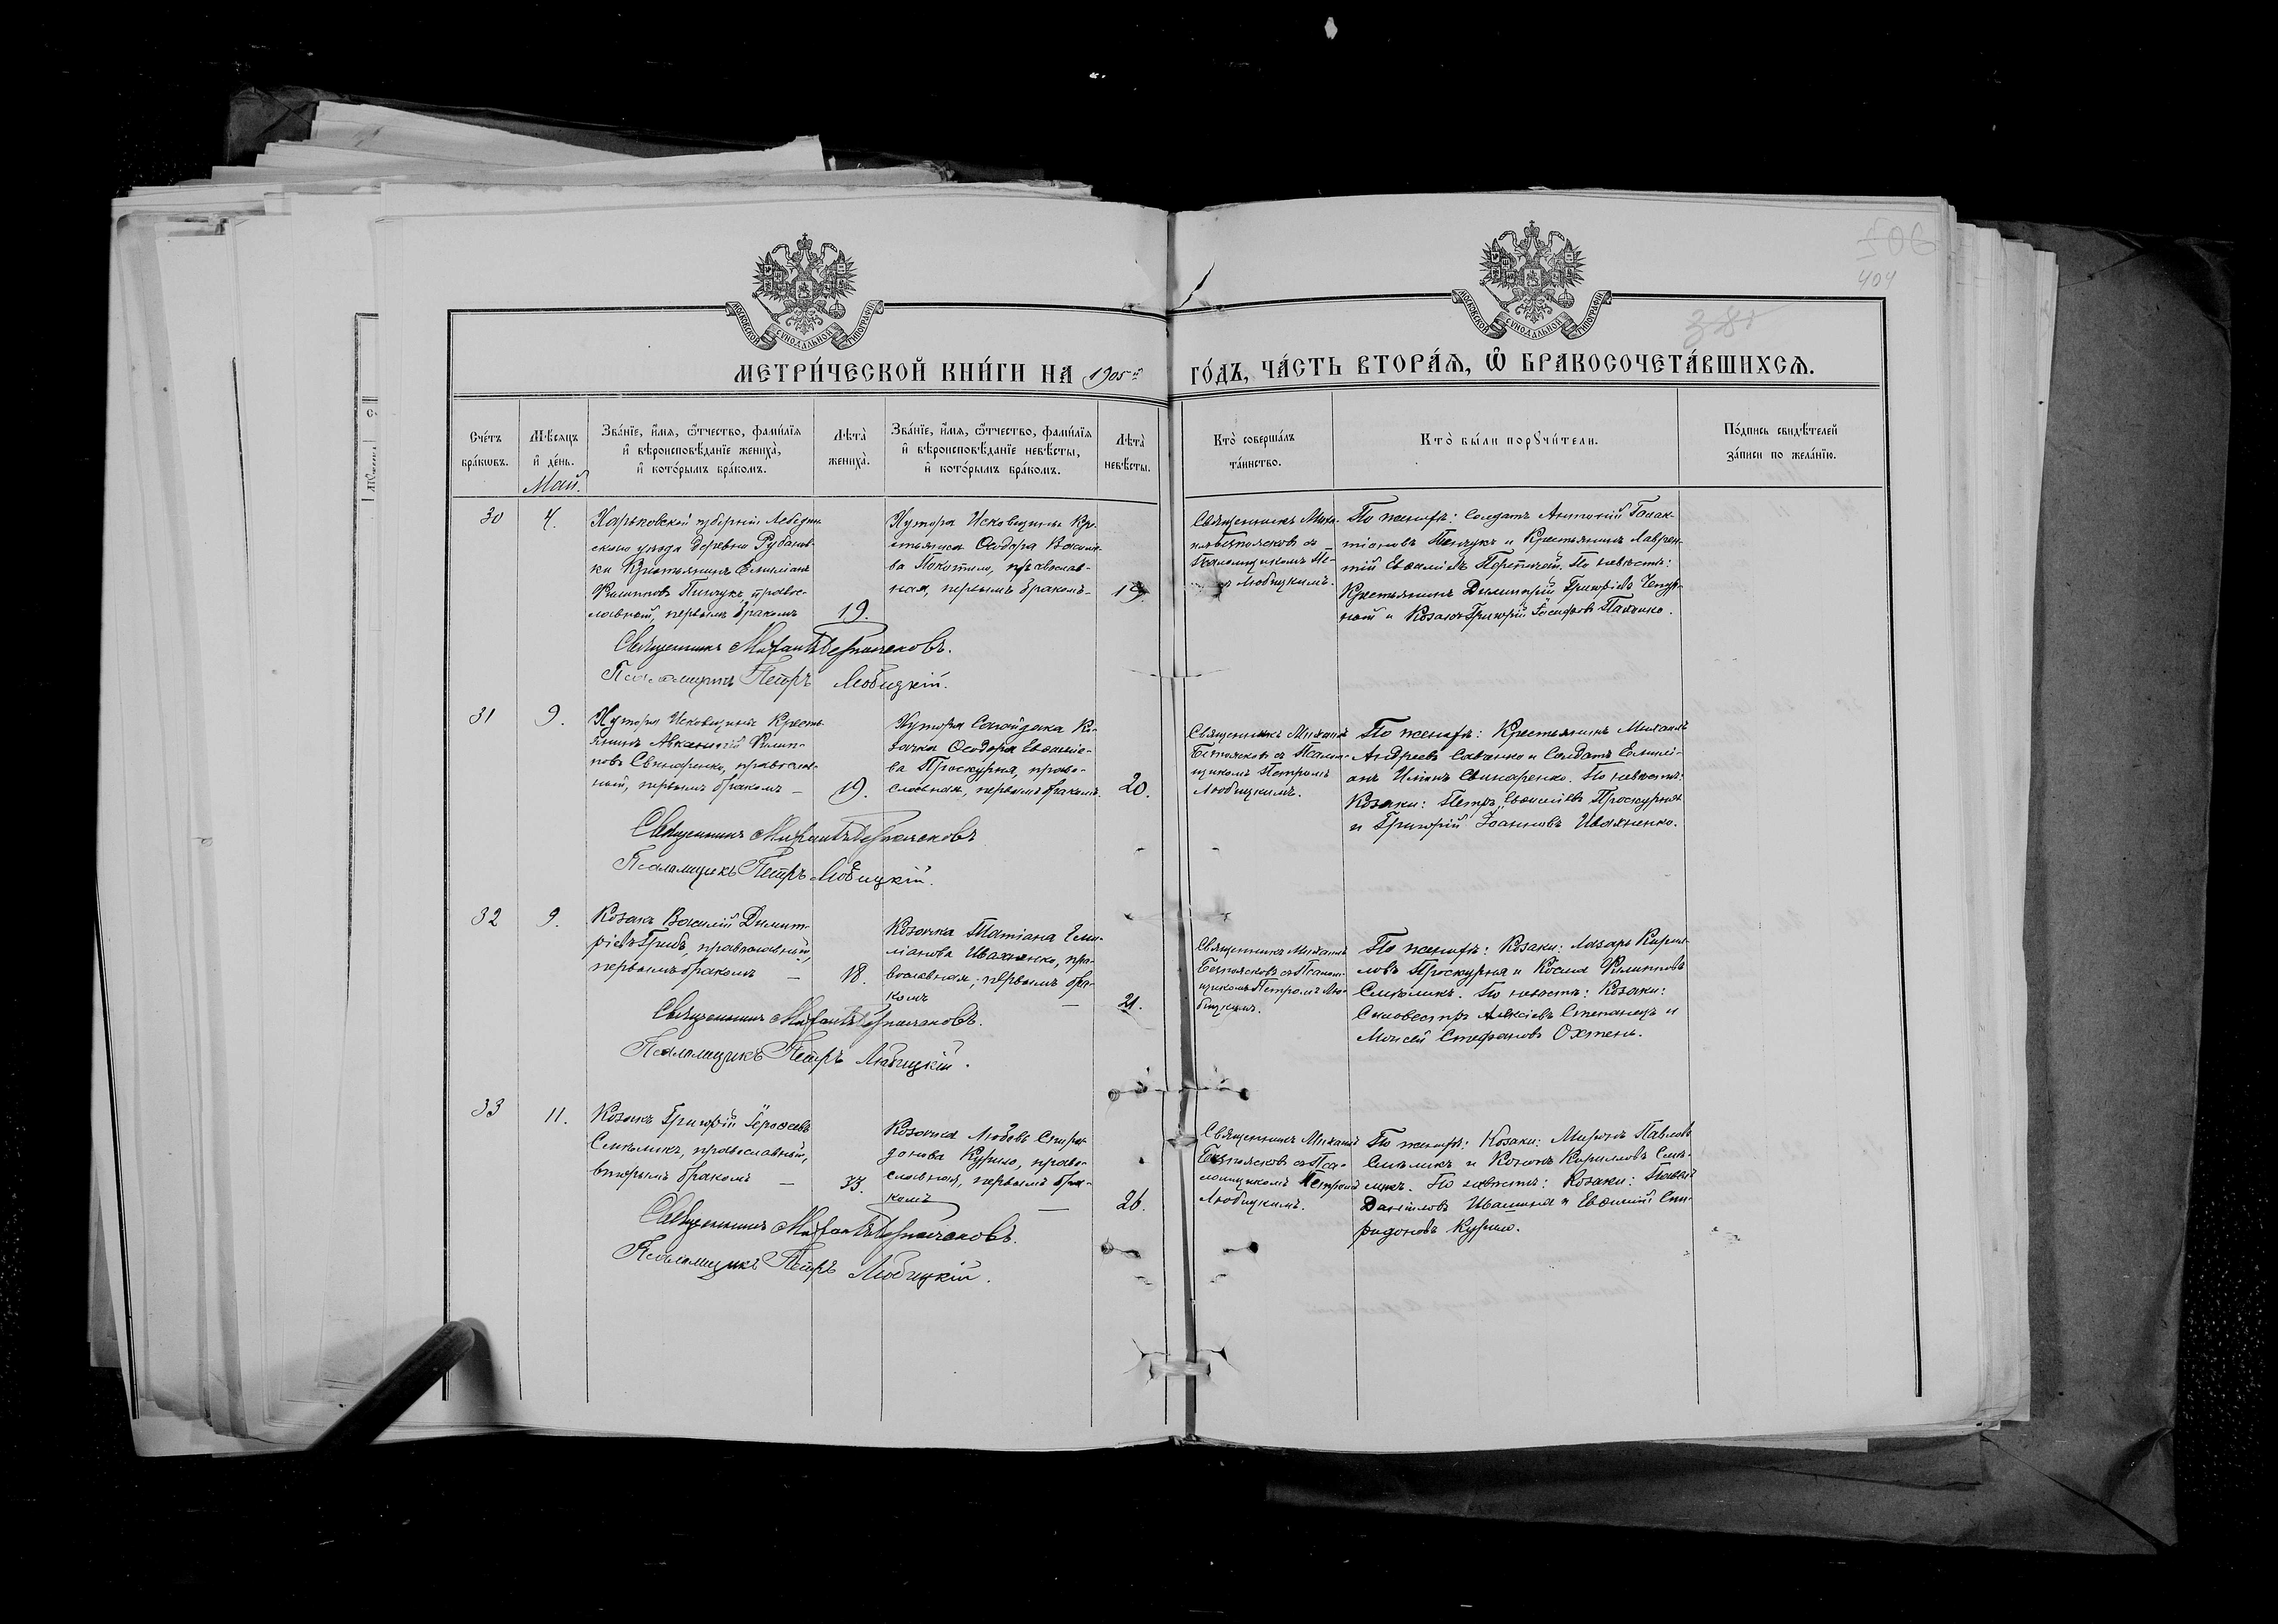 506
404
МОСКОВСКОЙ СѴНОДАЛЬНОЙ ТИПОГРАФІИ
МОСКОВСКОЙ СѴНОДАЛЬНОЙ ТИПОГРАФІИ
МЕТРИ́ЧЕСКОЙ КНИ́ГИ НА 1905 й
ГО́ДЪ, ЧА́СТЬ ВТОРА́Ѧ, Ѽ БРАКОСОЧЕТА́ВШИХСѦ.
Сче́тъ бра́кѡвъ.
Мѣ́сяцъ и҆ де́нь.
Май.
Зва́нїе, и҆́мѧ, ѻ҆́тчество, фами́лїѧ
и҆ вѣроисповѣ́данїе жениха̀,
и҆ кото́рымъ бра́комъ.
Лѣта̀ жениха̀.
Зва́нїе, и҆́мѧ, ѻ҆́тчество, фами́лїѧ
и҆ вѣроисповѣ́данїе невѣ́сты,
и҆ кото́рымъ бра́комъ.
Лѣта̀ невѣ́сты.
Кто̀ соверша́лъ
та́инство.
Кто̀ бы́ли порꙋчи́тели.
По́дпись свидѣ́телей
за́писи по жела́нїю.
30
4.
Харьковской губерніи Лебедин-
скаго уѣзда деревни Рубанов-
ки Крестьянинъ Емиліанъ
Филипповъ Пинчукъ правос-
лавный, первымъ бракомъ
19.
Хутора Исковщины Кре-
стьянка Ѳеодора Василіе-
ва Покотило, православ-
ная, первымъ бракомъ-
19.
Священникъ Миха-
илъ Безпоясковъ съ
Псаломщикомъ Пе-
Любицкимъ.
По женихѣ: Солдатъ Антоній
Пинчукъ и Крестьянинъ Лаврен-
тій По невѣстѣ:
Крестьянинъ Димитрій Григоріевъ
и Козакъ Григорій Іосифовъ
Священникъ Михаилъ Безпоясковъ.
Псаломщикъ Петръ Любицкій.
31
9.
Хутора Исковщины Кресть-
янинъ Филип-
повъ Свинаренко, православ-
ный, первымъ бракомъ —
19.
Хутора Сагайдака Ко-
зачка Ѳеодора
ва Проскурня, право-
славная, первымъ бракомъ.
20.
Священникъ Михаилъ
Безпоясковъ съ Псалом-
щикомъ Петромъ
Любицкимъ.
По женихѣ: Крестьянинъ Михаилъ
Андреевъ Савченко и Солдатъ Емилі-
анъ Свинаренко. По невѣстѣ:
Козаки: Петръ Проскурня
и Григорій Іоанновъ Ивахненко.
Священникъ Михаилъ Безпоясковъ
Псаломщикъ Петръ Любицкій.
32
9.
Козакъ Василій Димит-
ріевъ Грибъ, православный,
первымъ бракомъ —
18.
Козачка Татіана Еми-
ліанова Ивахненко, пра-
вославная, первымъ бра-
комъ —
21.
Священникъ Михаилъ
Безпоясковъ съ Псалом-
щикомъ Петромъ Лю-
бицкимъ.
По женихѣ: Козаки: Лазарь Кирил-
ловъ Проскурня и Косма Филипповъ
Смѣликъ. По невѣстѣ: Козаки:
Силовестръ Алексіевъ Степанецъ и
Моисей Стефановъ Охтень.
Священникъ Михаилъ Безпоясковъ.
Псаломщикъ Петръ Любицкій.
33
11.
Козакъ Григорій
Смѣликъ, православный,
вторымъ бракомъ —
33.
Козачка Любовь Спири-
донова Курило, право-
славная, первымъ бра-
комъ —
26.
Священникъ Михаилъ
Безпоясковъ съ Пса-
ломщикомъ Петромъ
Любицкимъ.
По женихѣ: Козаки: Миронъ Павловъ
Смѣликъ и Кононъ Кирилловъ Смѣ-
ликъ. По невѣстѣ: Козаки:
Даніиловъ и Евѳимій Спи-
ридоновъ Курило.
Священникъ Михаилъ Безпоясковъ.
Псаломщикъ Петръ Любицкій.